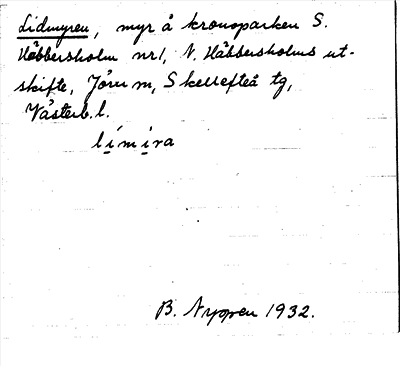 Lidmyren, myr å kronoparken S.
Häbbersholm nr 1, N. Häbbersholms ut-
skifte, Jörn m, Skellefteå tg,
Västerb. l.
límira
B. Nygren 1932.